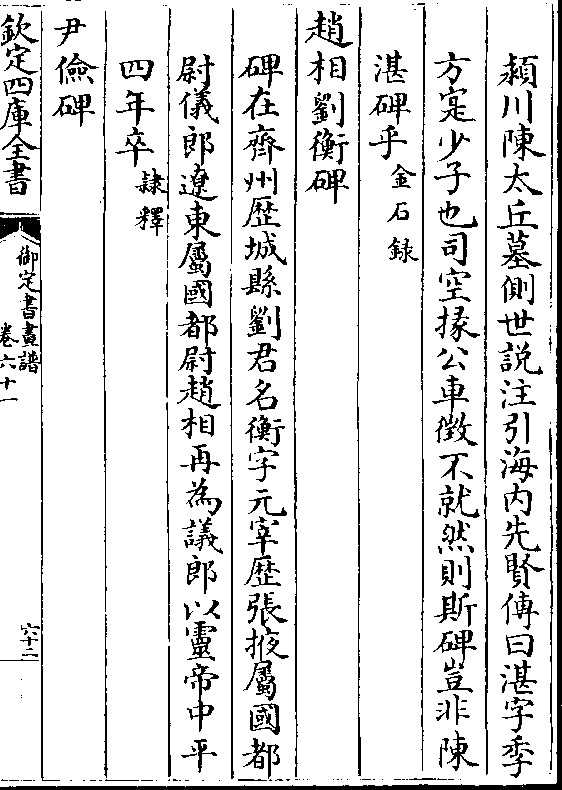 潁川陳太丘墓側世説注引海内先賢傳曰湛字季
方寔少子也司空掾公車徴不就然則斯碑豈非陳
湛碑乎金石録
趙相劉衡碑
碑在齊州歴城縣劉君名衡字元宰歴張掖屬國都
尉儀郎遼東屬國都尉趙相再為議郎以靈帝中平
四年卒隷釋
尹儉碑
欽定四庫全書
御定書畫譜
卷六十一
六十二